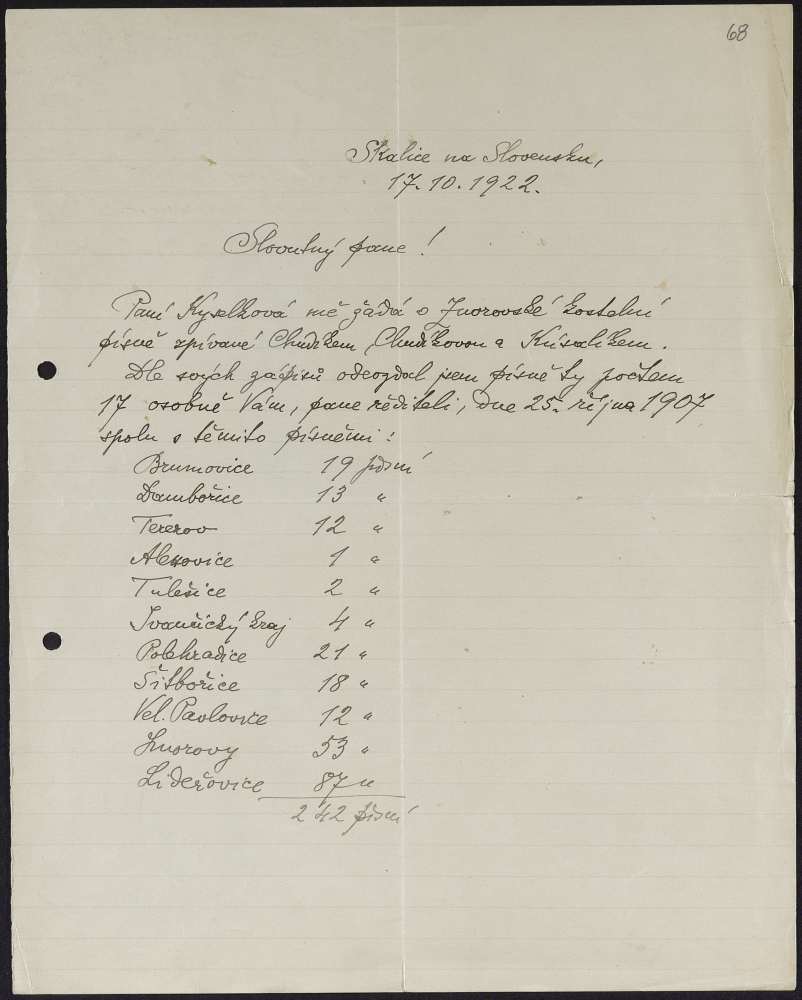 68
Skalice na Slovensku,
17.10.1922.
Slovutný pane!
Paní Kyselková mě žádá o Znorovské kostelní
písně zpívané Chudíkem, Chudíkovou a Kúsalíkem.
Dle svých zápisů odevzdal jsem písně ty počtem
17 osobně Vám, pane řediteli, dne 25. října 1907
spolu s těmito písněmi:
Brumovice 19 písní
Dambořice 13 "
Tererov 12 "
Alexovice 1 "
Tulešice 2 "
Ivančický kraj 4 "
Polehradice 21 "
Šitbořice 18 "
Vel. Pavlovice 12 "
Znorovy 53 "
Lideřovice 87 "
242 písní